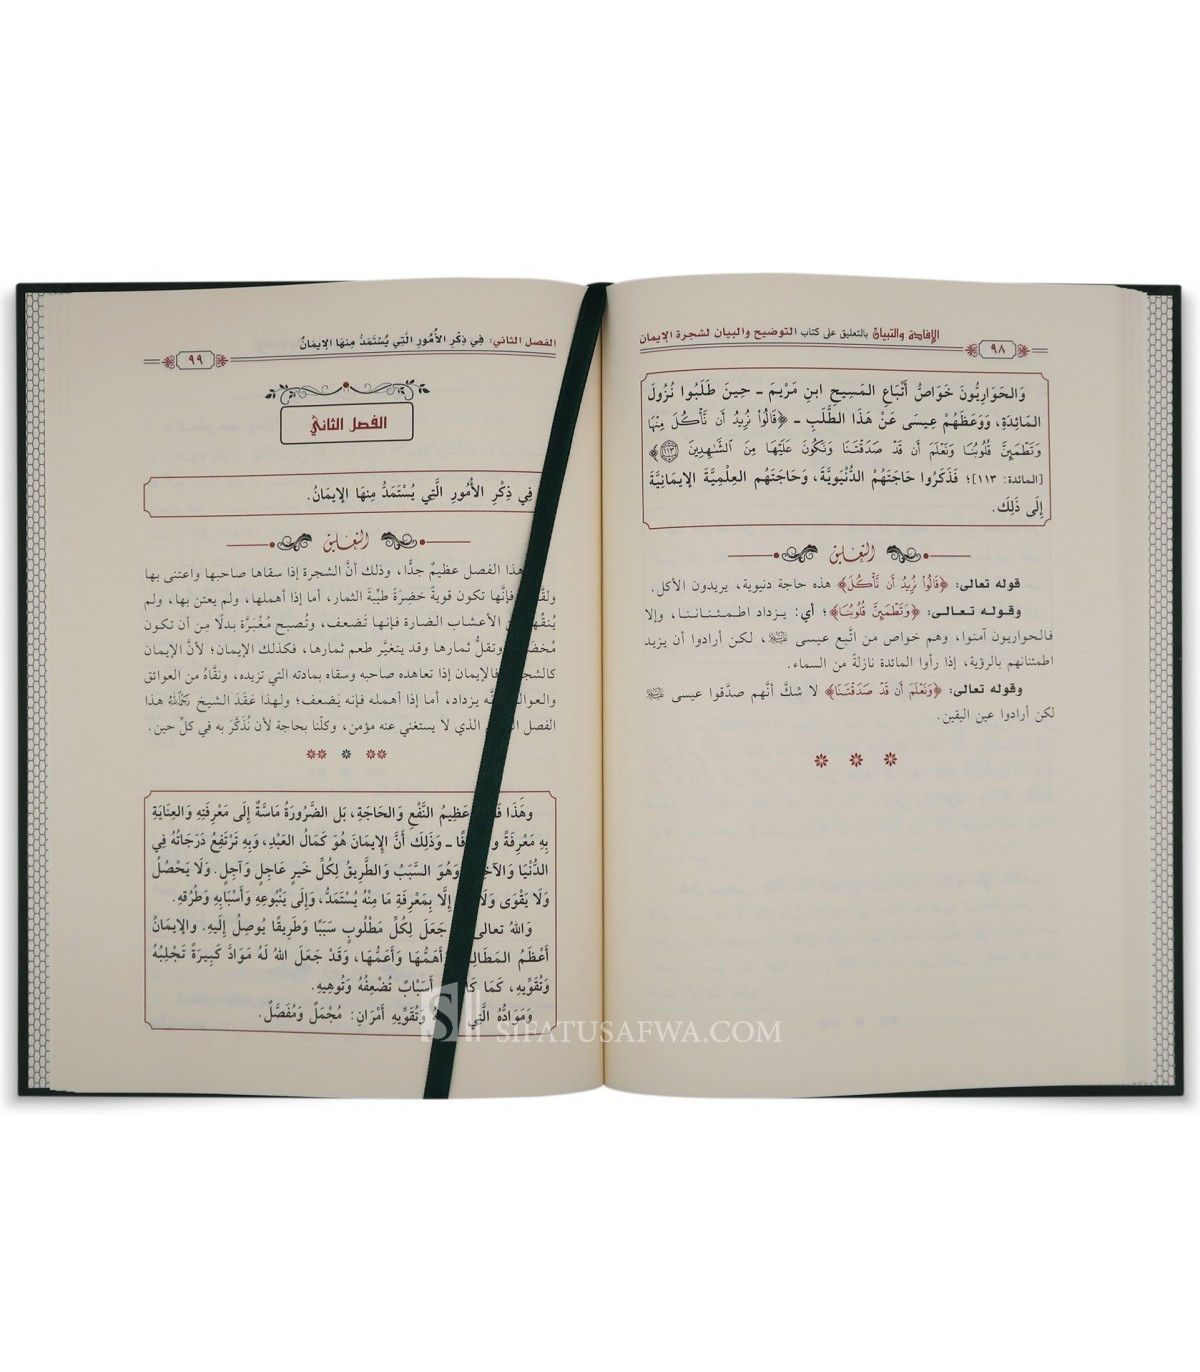 الإفادة والتبيان بالتعليق على كتاب التوضيح والبيان لشجرة الإيمان
٩٨
وَالحَوَارِيُّونَ خَوَاصُّ أَتْبَاعِ المَسِيحِ ابنِ مَرْيَمَ ـ حِينَ طَلَبُوا نُزُولَ
المَائِدَةِ، وَوَعَظَهُمْ عِيسَى عَنْ هَذَا الطَّلَبِ ـ ﴿قَالُوا۟ نُرِيدُ أَن نَّأْكُلَ مِنْهَا
وَتَطْمَئِنَّ قُلُوبُنَا وَنَعْلَمَ أَن قَدْ صَدَقْتَنَا وَنَكُونَ عَلَيْهَا مِنَ ٱلشَّـٰهِدِينَ ١١٣﴾
[المائدة: ١١٣]؛ فَذَكَرُوا حَاجَتَهُمْ الدُّنْيَوِيَّةَ، وَحَاجَتَهُم العِلْمِيَّةَ الإِيمَانِيَّةَ
إِلَى ذَلِكَ.
التعليق
قوله تعالى: ﴿قَالُوا۟ نُرِيدُ أَن نَّأْكُلَ﴾ هذه حاجة دنيوية، يريدون الأكل.
وقوله تعالى: ﴿وَتَطْمَئِنَّ قُلُوبُنَا﴾؛ أي: يزداد اطمئناننا، وإلا
فالحواريون آمنوا، وهم خواص من اتَّبع عيسى عليه السلام، لكن أرادوا أن يزيد
اطمئنانهم بالرؤية، إذا رأوا المائدة نازلةً من السماء.
وقوله تعالى: ﴿وَنَعْلَمَ أَن قَدْ صَدَقْتَنَا﴾ لا شكَّ أنَّهم صدَّقوا عيسى عليه السلام
لكن أرادوا عين اليقين.
الفصل الثاني: فِي ذِكْرِ الأُمُورِ الَّتِي يُسْتَمَدُّ مِنهَا الإيمَانُ
٩٩
الفصل الثاني
فِي ذِكْرِ الأُمُورِ الَّتِي يُسْتَمَدُّ مِنهَا الإيمَانُ.
التعليق
هذا الفصل عظيمٌ جدًّا، وذلك أنَّ الشجرة إذا سقاها صاحبها واعتنى بها
فإنَّها تكون قويةً خضِرَةً طيِّبةَ الثمار، أما إذا أهملها، ولم يعتن بها، ولم
الأعشاب الضارة فإنها تَضعف، وتُصبح مُغْبَرَّة بدلًا مِن أن تكون
وتقلُّ ثمارها وقد يتغيَّر طعم ثمارها، فكذلك الإيمان؛ لأنَّ الإيمان
فالإيمان إذا تعاهده صاحبه وسقاه بمادته التي تزيده، ونقَّاهُ من العوائق
يزداد، أما إذا أهمله فإنه يَضعف؛ ولهذا عَقَدَ الشيخ رحمه الله هذا
الفصل الذي لا يستغني عنه مؤمن، وكلُّنا بحاجة لأن نُذَكَّرَ به في كلِّ حين.
وَهَذَا عَظِيمُ النَّفْعِ وَالحَاجَةِ، بَل الضَّرُورَةُ مَاسَّةٌ إِلَى مَعْرِفَتِهِ وَالعِنَايَةِ
بِهِ مَعْرِفَةً ـ وَذَلِكَ أَنَّ الإِيمَانَ هُوَ كَمَالُ العَبْدِ، وَبِهِ تَرْتَفِعُ دَرَجَاتُهُ فِي
الدُّنْيَا وَهُوَ السَّبَبُ وَالطَّرِيقُ لِكُلِّ خَيرٍ عَاجِلٍ وَآجِلٍ. وَلَا يَحْصُلُ
وَلَا يَقْوَى إِلَّا بِمَعْرِفَةِ مَا مِنْهُ يُسْتَمَدُّ، وَإِلَى يَنْبُوعِهِ وَأَسْبَابِهِ وَطُرُقِهِ.
وَاللهُ تعالى جَعَلَ لِكُلِّ مَطْلُوبٍ سَبَبًا وَطَرِيقًا يُوصِلُ إِلَيهِ. والإِيمَانُ
أَعْظَمُ وَأَهَمُّهَا وَأَعَمُّهَا، وَقَدْ جَعَلَ اللهُ لَهُ مَوَادَّ كَبِيرَةً تَجْلِبُهُ
وَتُقَوِّيهِ، كَمَا أَسْبَابٌ تُضْعِفُهُ وَتُوهِيهِ.
وَمَوَادُّهُ الَّتِي وَتُقَوِّيهِ أَمْرَانِ: مُجْمَلٌ وَمُفَصَّلٌ.
SIFATUSAFWA.COM